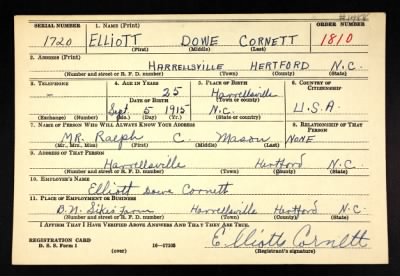 SERIAL NUMBER 1. NAME (Print) ORDER NUMBER
1720 ELLIOTT DOWE CORNETT 1810
(First) (Middle) (Last)
2. ADDRESS (Print)
HARRELLSVILLE HERTFORD N.C.
(Number and street or R. F. D. number) (Town) (County) (State)
3. TELEPHONE 4. AGE IN YEARS 5. PLACE OF BIRTH 6. COUNTRY OF CITIZENSHIP
25 Harrellsville
DATE OF BIRTH (Town or county)
Sept 5 1915 N.C. U.S.A.
(Exchange) (Number) (Mo.) (Day) (Yr.) (State or country)
7. NAME OF PERSON WHO WILL ALWAYS KNOW YOUR ADDRESS 8. RELATIONSHIP OF THAT PERSON
MR. Ralph C. Mason NONE
(Mr., Mrs., Miss) (First) (Middle) (Last)
9. ADDRESS OF THAT PERSON
Harrellsville Hertford N.C.
(Number and street or R. F. D. number) (Town) (County) (State)
10. EMPLOYER'S NAME
Elliott Dowe Cornett
11. PLACE OF EMPLOYMENT OR BUSINESS
B.N. Sikes Farm Harrellsville Hertford N.C.
(Number and street or R. F. D. number) (Town) (County) (State)
I AFFIRM THAT I HAVE VERIFIED ABOVE ANSWERS AND THAT THEY ARE TRUE.
REGISTRATION CARD
D. S. S. Form 1 (over) 16—17105 Elliotts Cornett
(Registrant's signature)